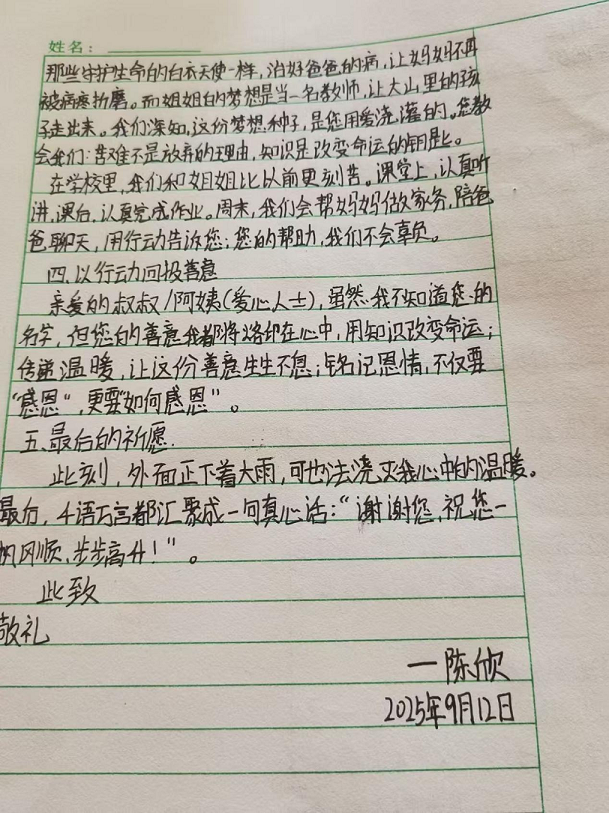 姓名：
那些守护生命的白衣天使一样，治好爸爸的病，让妈妈不再
被病魔折磨。而姐姐的梦想是当一名教师，让大山里的孩
子走出来。我们深知，这份梦想种子，是您用爱浇灌的。您教
会我们：苦难不是放弃的理由，知识是改变命运的钥匙。
在学校里，我们和姐姐比以前更刻苦。课堂上，认真听
讲，课后，认真完成作业。周末，我们会帮妈妈做家务，陪爸
爸聊天，用行动告诉您；您的帮助，我们不会辜负。
四、以行动回报善意
亲爱的叔叔/阿姨(爱心人士)，虽然我不知道您的
名字，但您的善意我都将烙印在心中，用知识改变命运；
传递温暖，让这份善意生生不息；铭记恩情，不仅要
“感恩”，更要“如何感恩”。
五、最后的祈愿.
此刻，外面正下着大雨，可也法浇灭我心中的温暖。
最后，千语万言都汇聚成一句真心话：“谢谢您，祝您一
帆风顺，步步高升！”。
此致
敬礼
一陈欣
2025年9月12日